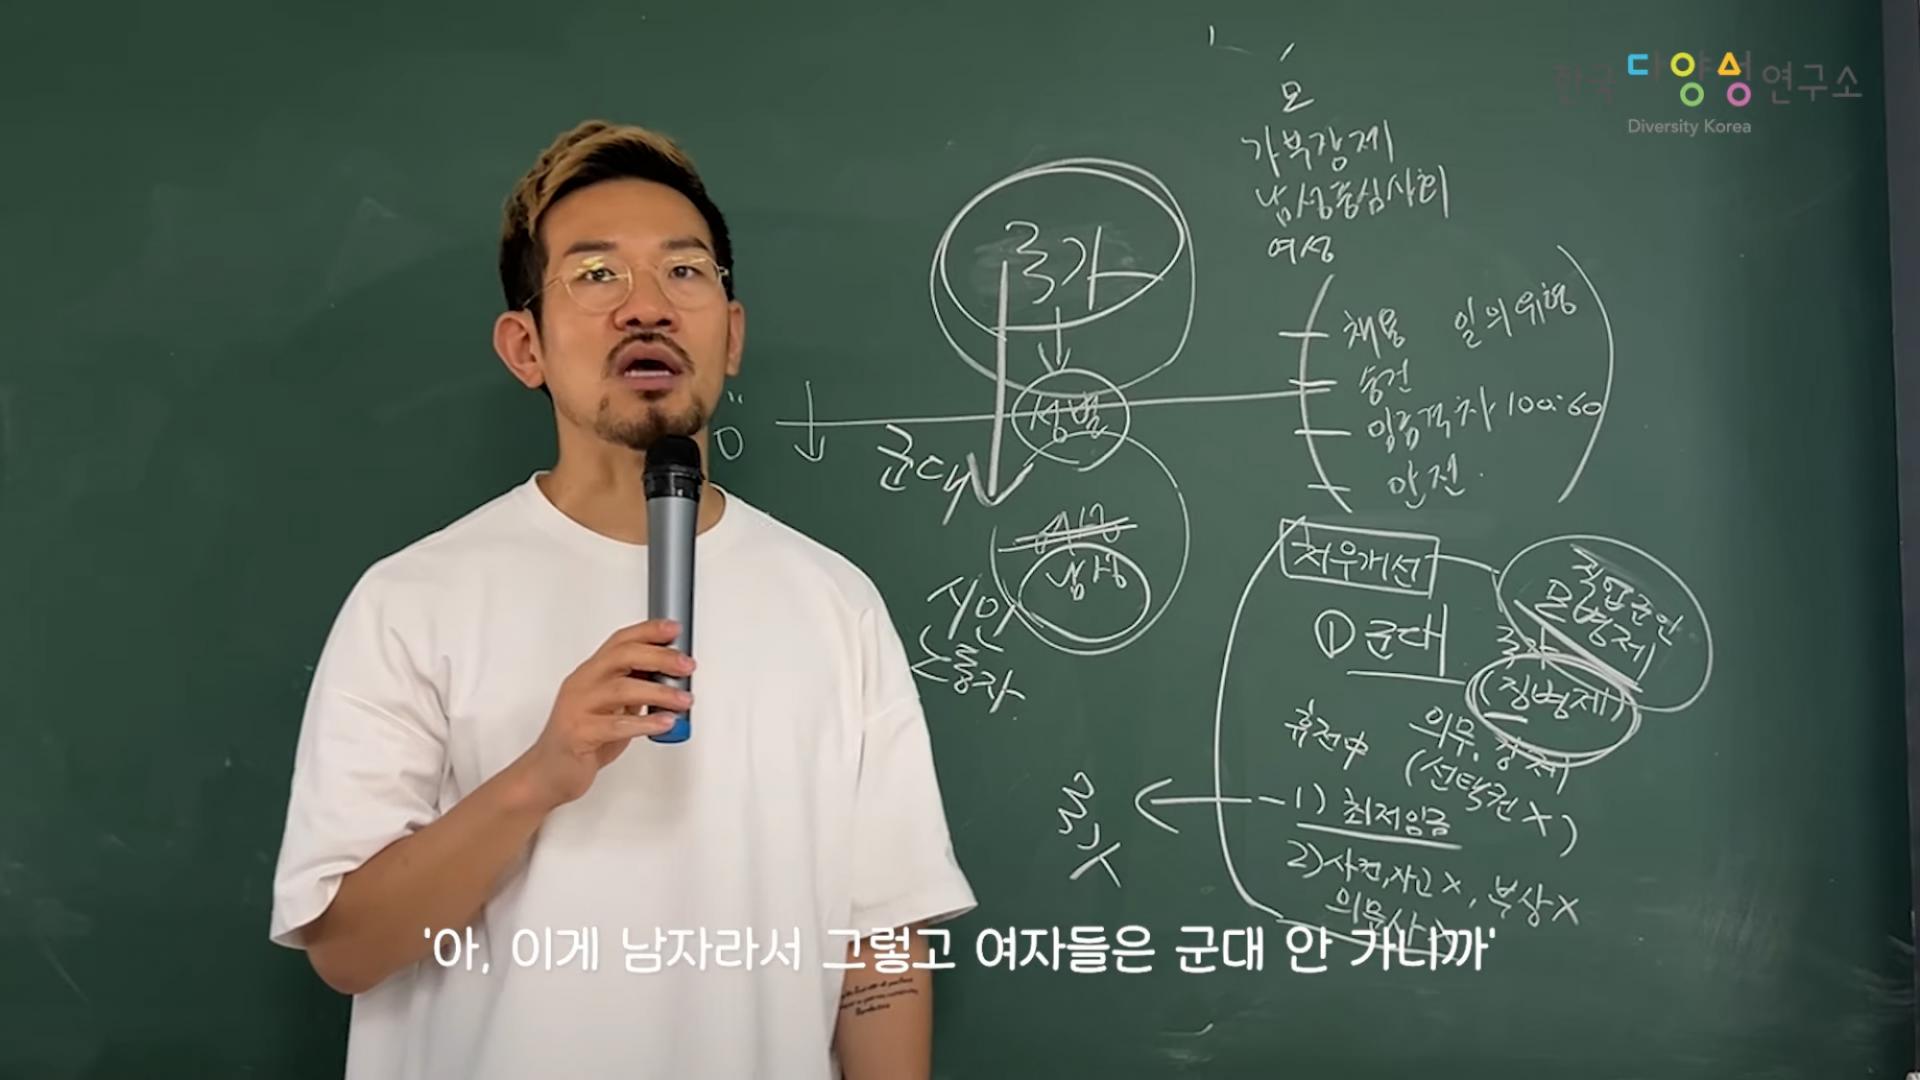 한국다양성연구소
Diversity Korea
모
가부장제
남성중심사회
여성
국가
채용 일의 위형
승진
임금격차 100:60
안전
성별
군대
남성
시민
노동자
처우개선
직업군인
모병제
① 군대
국가
(징병제)
휴전中
의무, 강제
(선택권 X)
1) 최저임금
2) 사건, 사고 X, 부상 X
'아, 이게 남자라서 그렇고 여자들은 군대 안 가니까'